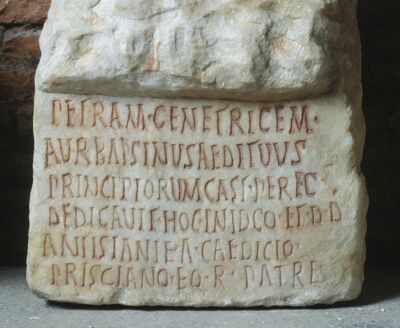 PETRAM·GENETRICEM·
AUR BASSINUS AEDITUUS
PRINCIPIORUM CAST·PEREG·
DEDICAVIT·HOC IN LOCO·ET·D D
ANTISTANTE·A·CAEDICIO·
PRISCIANO·EQ·R·PATRE